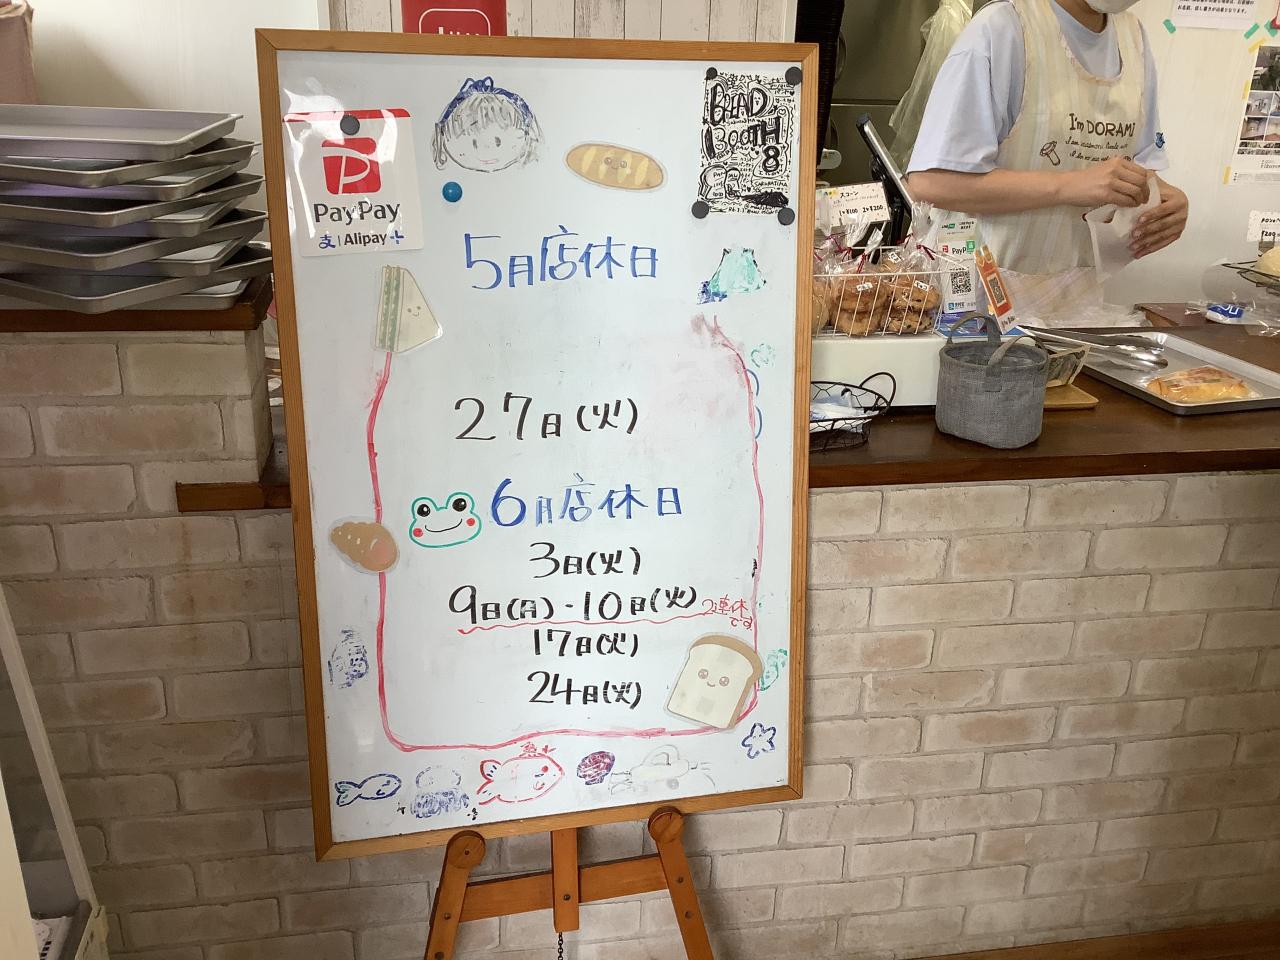 PayPay
支 Alipay+
BREAD
BOOTH
8
5月店休日
27日(火)
6月店休日
3日(火)
9日(月)・10日(火) 2連休
です
17日(火)
24日(火)
I'm DORAMI
スコーン
1ヶ¥100 2ヶ¥200
PayPay